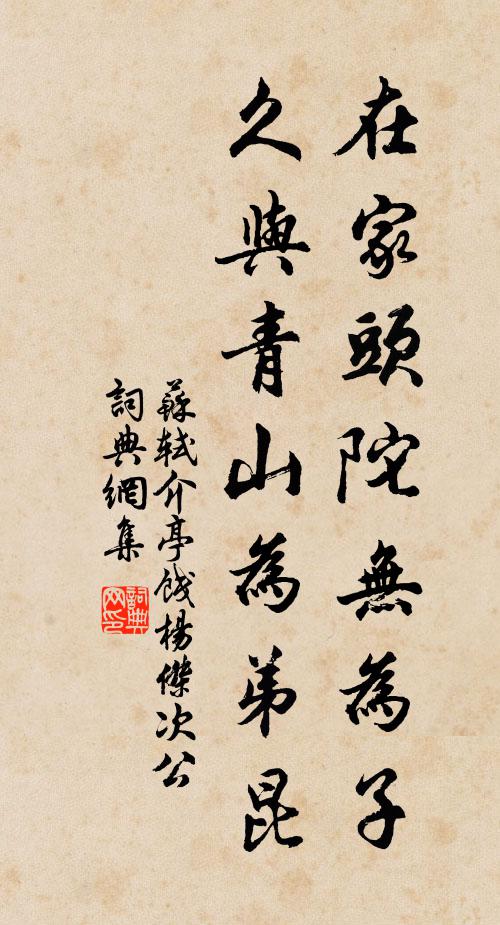 在家頭陀無為子
久與青山為弟昆
蘇軾介亭餞楊傑次公
詞典網集
詞典
网印